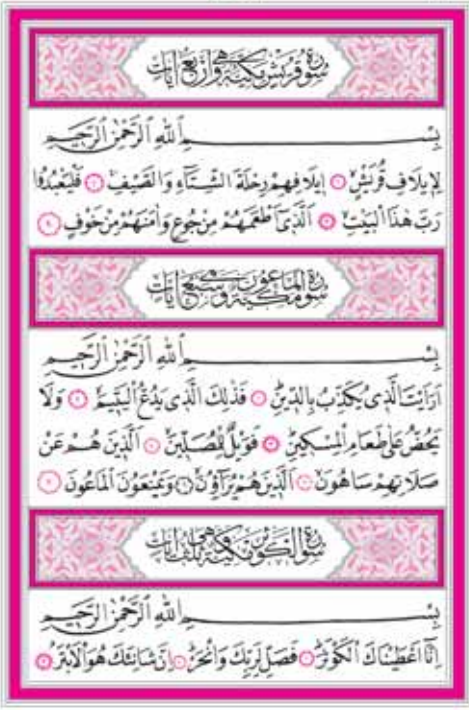 سورة قريش مكية وهي أربع آيات
بِسْمِ اللّٰهِ الرَّحْمٰنِ الرَّحِيمِ
لِإِيلَافِ قُرَيْشٍ ﴿١﴾ إِيلَافِهِمْ رِحْلَةَ الشِّتَاءِ وَالصَّيْفِ ﴿٢﴾ فَلْيَعْبُدُوا
رَبَّ هٰذَا الْبَيْتِ ﴿٣﴾ اَلَّذِى اَطْعَمَهُمْ مِنْ جُوعٍ وَاٰمَنَهُمْ مِنْ خَوْفٍ ﴿٤﴾
سورة الماعون مكية وهي سبع آيات
بِسْمِ اللّٰهِ الرَّحْمٰنِ الرَّحِيمِ
اَرَاَيْتَ الَّذِى يُكَذِّبُ بِالدِّينِ ﴿١﴾ فَذٰلِكَ الَّذِى يَدُعُّ الْيَتِيمَ ﴿٢﴾ وَلَا
يَحُضُّ عَلٰى طَعَامِ الْمِسْكِينِ ﴿٣﴾ فَوَيْلٌ لِلْمُصَلِّينَ ﴿٤﴾ اَلَّذِينَ هُمْ عَنْ
صَلَاتِهِمْ سَاهُونَ ﴿٥﴾ اَلَّذِينَ هُمْ يُرَاؤُنَ ﴿٦﴾ وَيَمْنَعُونَ الْمَاعُونَ ﴿٧﴾
سورة الكوثر مكية وهي ثلث آيات
بِسْمِ اللّٰهِ الرَّحْمٰنِ الرَّحِيمِ
اِنَّا اَعْطَيْنَاكَ الْكَوْثَرَ ﴿١﴾ فَصَلِّ لِرَبِّكَ وَانْحَرْ ﴿٢﴾ اِنَّ شَانِئَكَ هُوَ الْاَبْتَرُ ﴿٣﴾